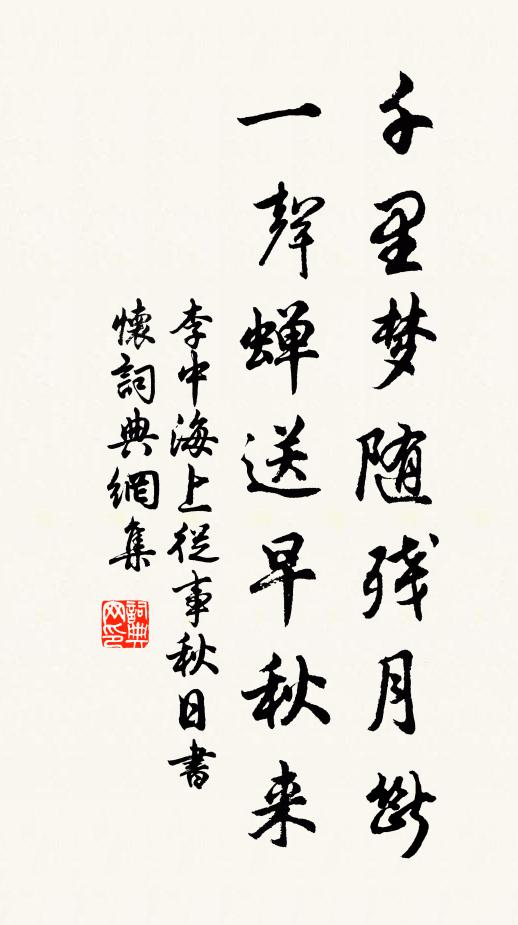 千里梦随残月断
一聲蝉送早秋来
李中海上從事秋日書
懷詞典網集
詞典网印